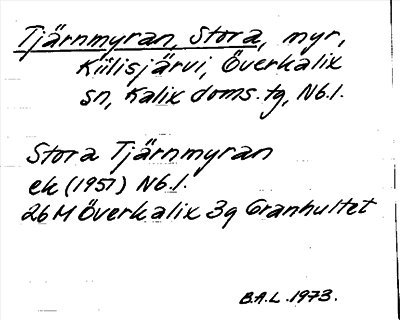 Tjärnmyran, Stora, myr,
Kiilisjärvi, Överkalix
sn, Kalix doms. tg, Nb.l.
Stora Tjärnmyran
ek (1951) Nb.l.
26 M Överkalix 3g Granhultet
B.A.L. 1973.